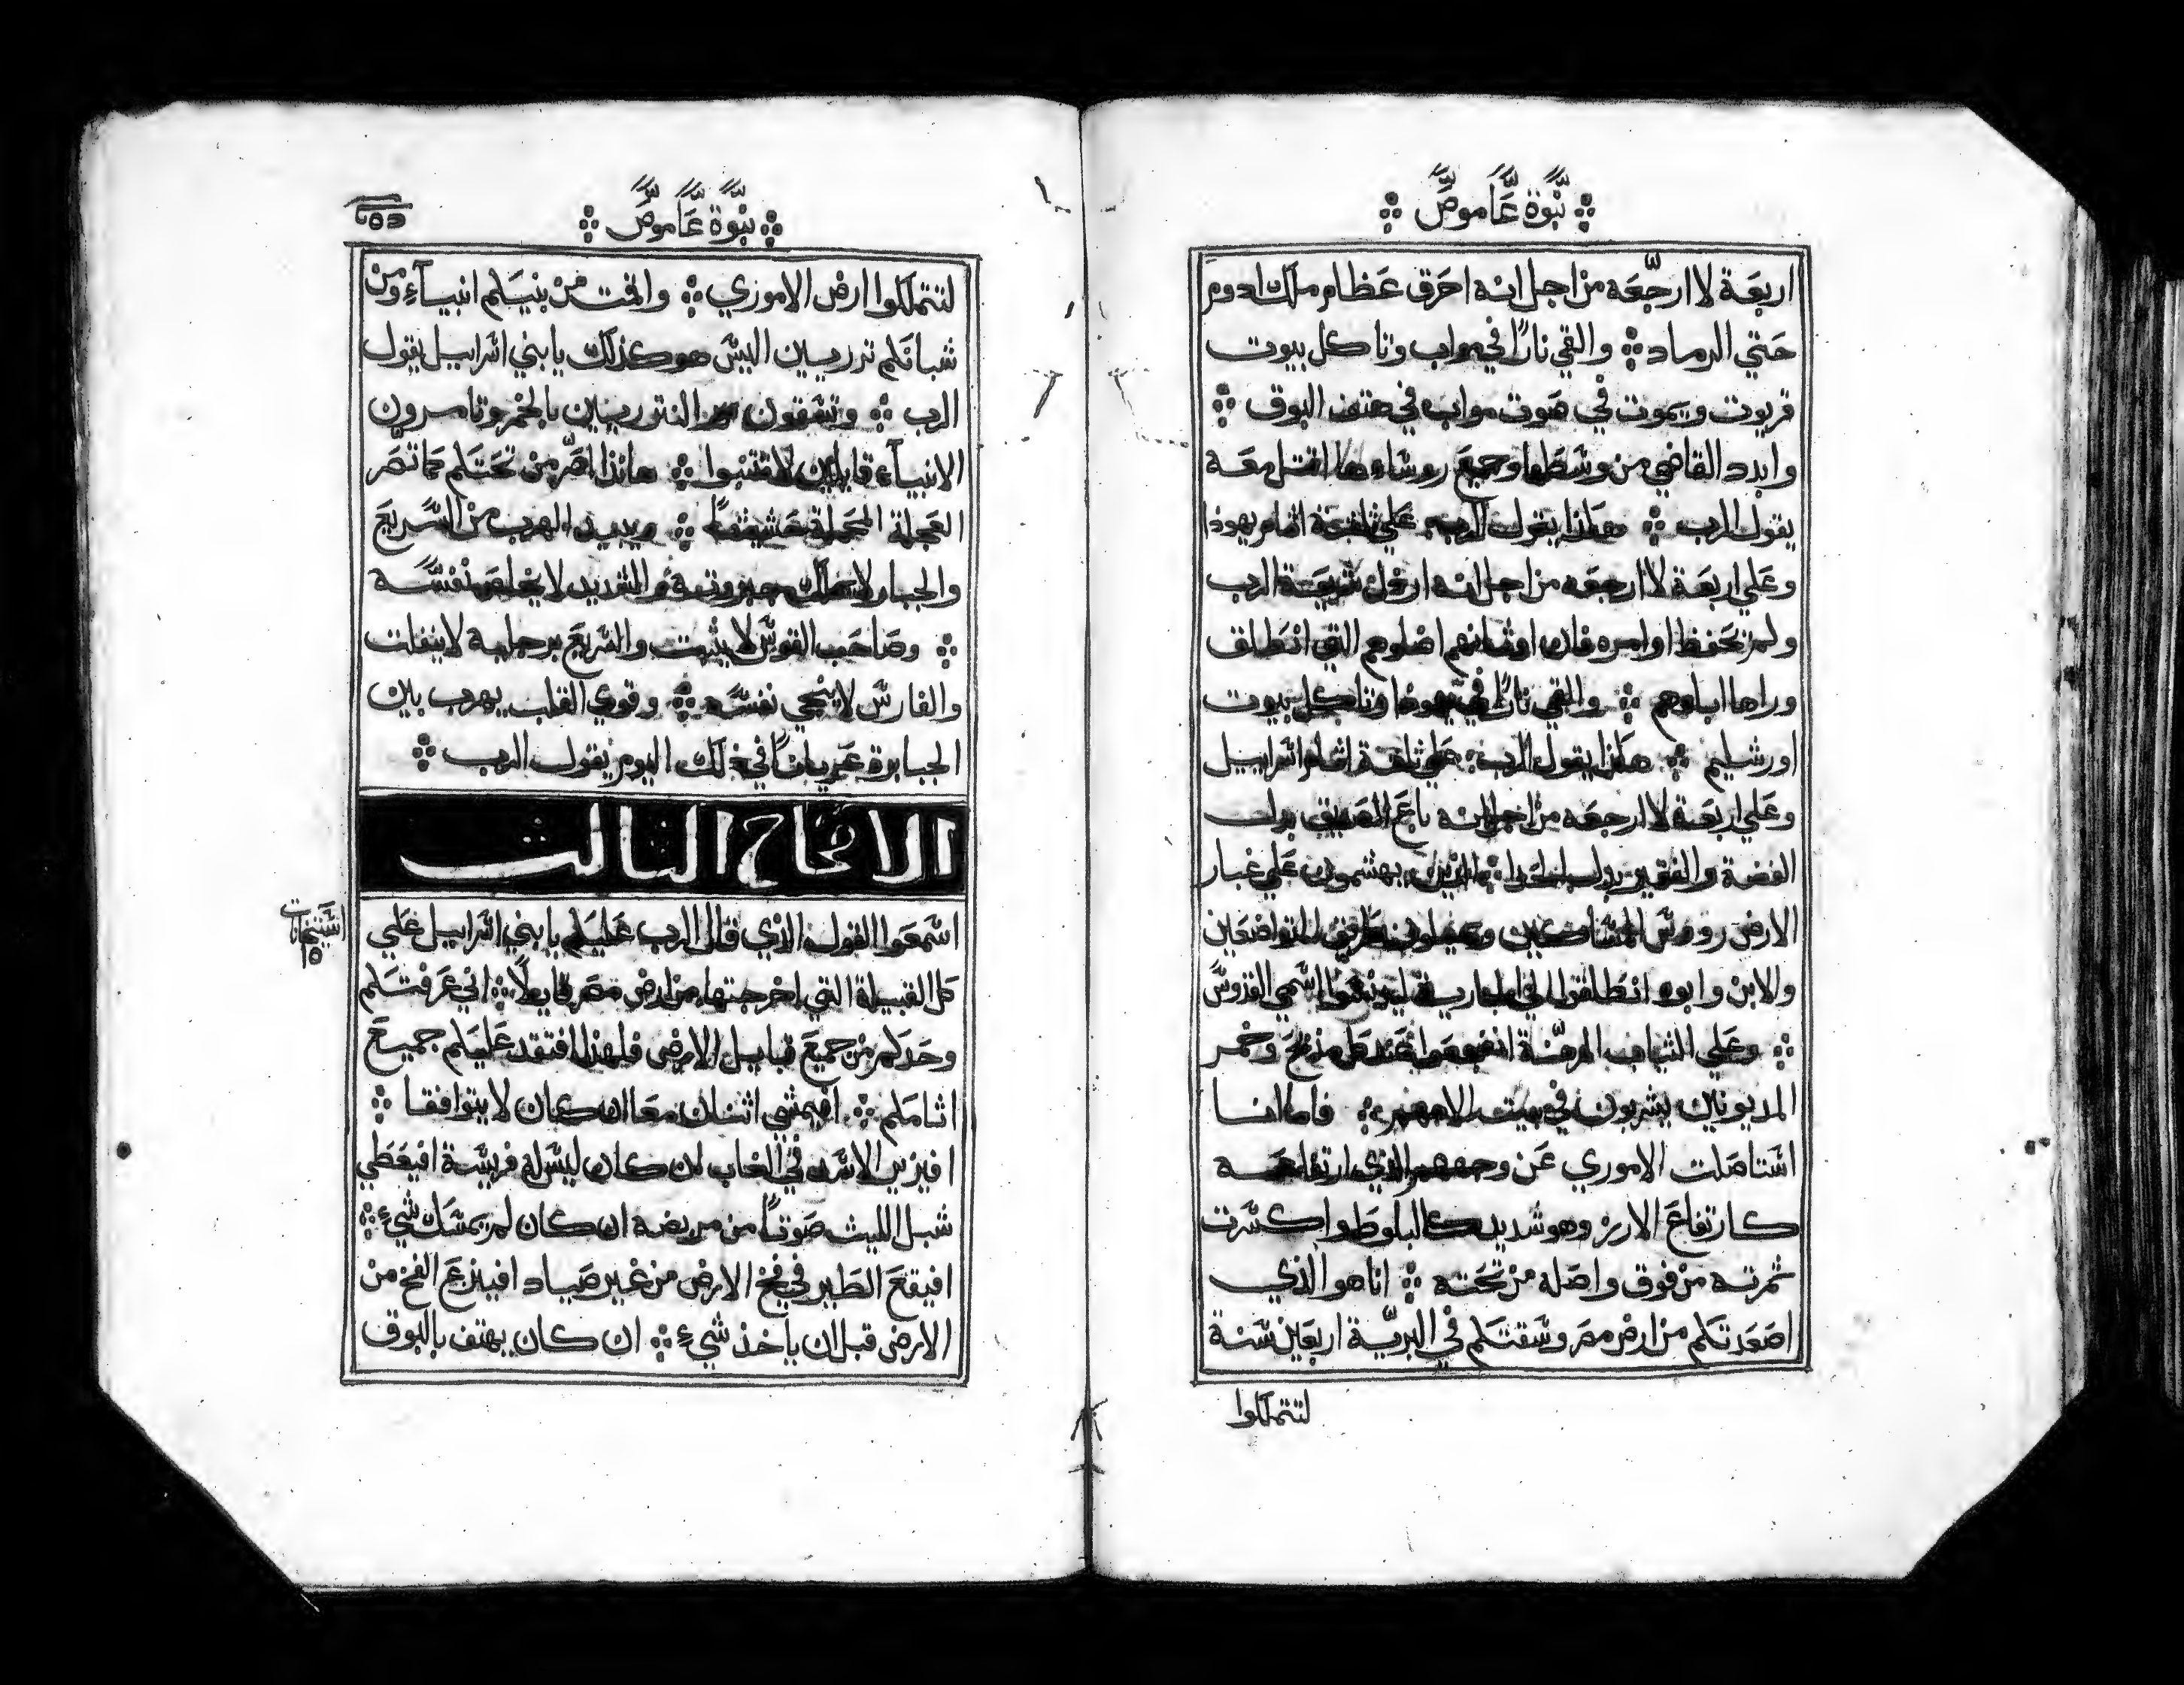 نبوة عاموص
اربعة لا ارجعه من اجل انه احرق عظام ملك ادوم
حتي الرماد والقي نارًا في مواب وتاكل بيوت
قريوت ويموت في صوت مواب في هتف البوق
وابدد القاضي من وسطها وجميع روساءها اقتل معه
يقول الرب هكذا يقول الرب علي ثلثة اثام يهوذا
وعلي اربعة لا ارجعه من اجل انه ارذل شريعة الرب
ولم يحفظ اوامره فان اوثانهم اضلوهم التي انطلق
وراها اباوهم والقي نارًا في يهوذا وتاكل بيوت
اورشليم هكذا يقول الرب علي ثلثة اثام اسراييل
وعلي اربعة لا ارجعه من اجل انه باع الصديق بدل
الفضة والفقير بدل الذين يهشمون علي غبار
الارض رووس المساكين طريق المتواضعين
والابن وابوه انطلقوا الي اسمي القدوس
وعلي الثياب المرهنة عند كل مذبح وخمر
المديونين يشربون في بيت الاههم فاما انا
استاصلت الاموري عن وجههم الذي ارتفاعه
كارتفاع الارز وهو شديد كالبلوط واكسرت
ثمرته من فوق واصله من تحته انا هو الذي
اصعدتكم من ارض مصر وسقتكم في البرية اربعين سنة
لتتملكوا
نبوة عاموص
لتتملكوا ارض الاموري واقمت من بنيكم انبياء ومن
شبانكم نزريين اليس هو كذلك يا بني اسراييل يقول
الرب وتسقون النزريين بالخمر وتامرون
الانبياء قايلين لا تتنبوا هانذا اصر من تحتكم كما تصر
العجلة المحملة حشيشًا ويبيد الهرب من السريع
والجبار لا يملك جبروته والشديد لا يخلص نفسه
وصاحب القوس لا يثبت والسريع برجليه لا ينفلت
والفارس لا ينجي نفسه وقوي القلب يهرب بين
الجبابرة عريانًا في ذلك اليوم يقول الرب
الاصحاح الثالث
اسمعوا القول الذي قال الرب عليكم يا بني اسراييل علي
كل القبيلة التي اخرجتها من ارض مصر قايلًا اني عرفتكم
وحدكم من جميع قبايل الارض فلهذا افتقد عليكم جميع
اثامكم افيمشي اثنان معا ان كان لا يتوافقا
افيزير الاسد في الغاب ان كان ليس له فريسة افيعطي
شبل الليث صوتًا من مربضه ان كان لم يمسك شيء
افيقع الطير في فخ الارض من غير صياد افينزع الفخ من
الارض قبل ان ياخذ شيء ان كان يهتف بالبوق